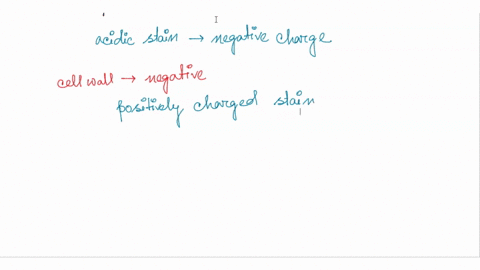 acidic stain → negative charge
cell wall → negative
positively charged stain